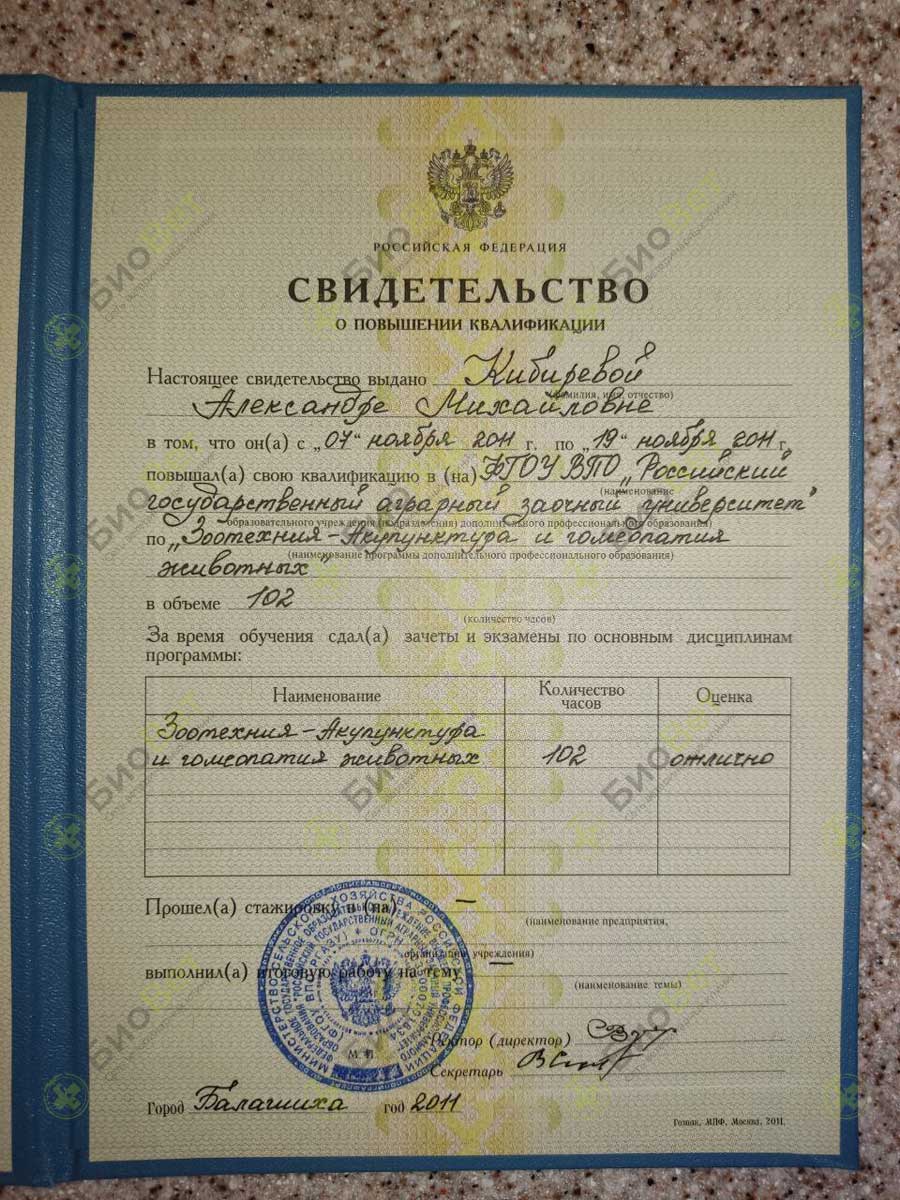 РОССИЙСКАЯ ФЕДЕРАЦИЯ
СВИДЕТЕЛЬСТВО
О ПОВЫШЕНИИ КВАЛИФИКАЦИИ
Настоящее свидетельство выдано Кибиревой
(фамилия, имя, отчество)
Александре Михайловне
в том, что он(а) с „07“ ноября 2011 г. по „19“ ноября 2011 г.
повышал(а) свою квалификацию в (на) ФГОУ ВПО „Российский
(наименование
государственный аграрный заочный университет"
образовательного учреждения (подразделения) дополнительного профессионального образования)
по „Зоотехния-Акупунктура и гомеопатия
(наименование программы дополнительного профессионального образования)
животных"
в объеме 102
(количество часов)
За время обучения сдал(а) зачеты и экзамены по основным дисциплинам
программы:
Наименование Количество часов Оценка
Зоотехния-Акупунктура
и гомеопатия животных 102 отлично
Прошел(а) стажировку в (на) —
(наименование предприятия,
организации, учреждения)
выполнил(а) итоговую работу на тему —
(наименование темы)
Ректор (директор)
М П
Секретарь
Город Балашиха год 2011
Гознак, МПФ, Москва, 2011.
БиоВет